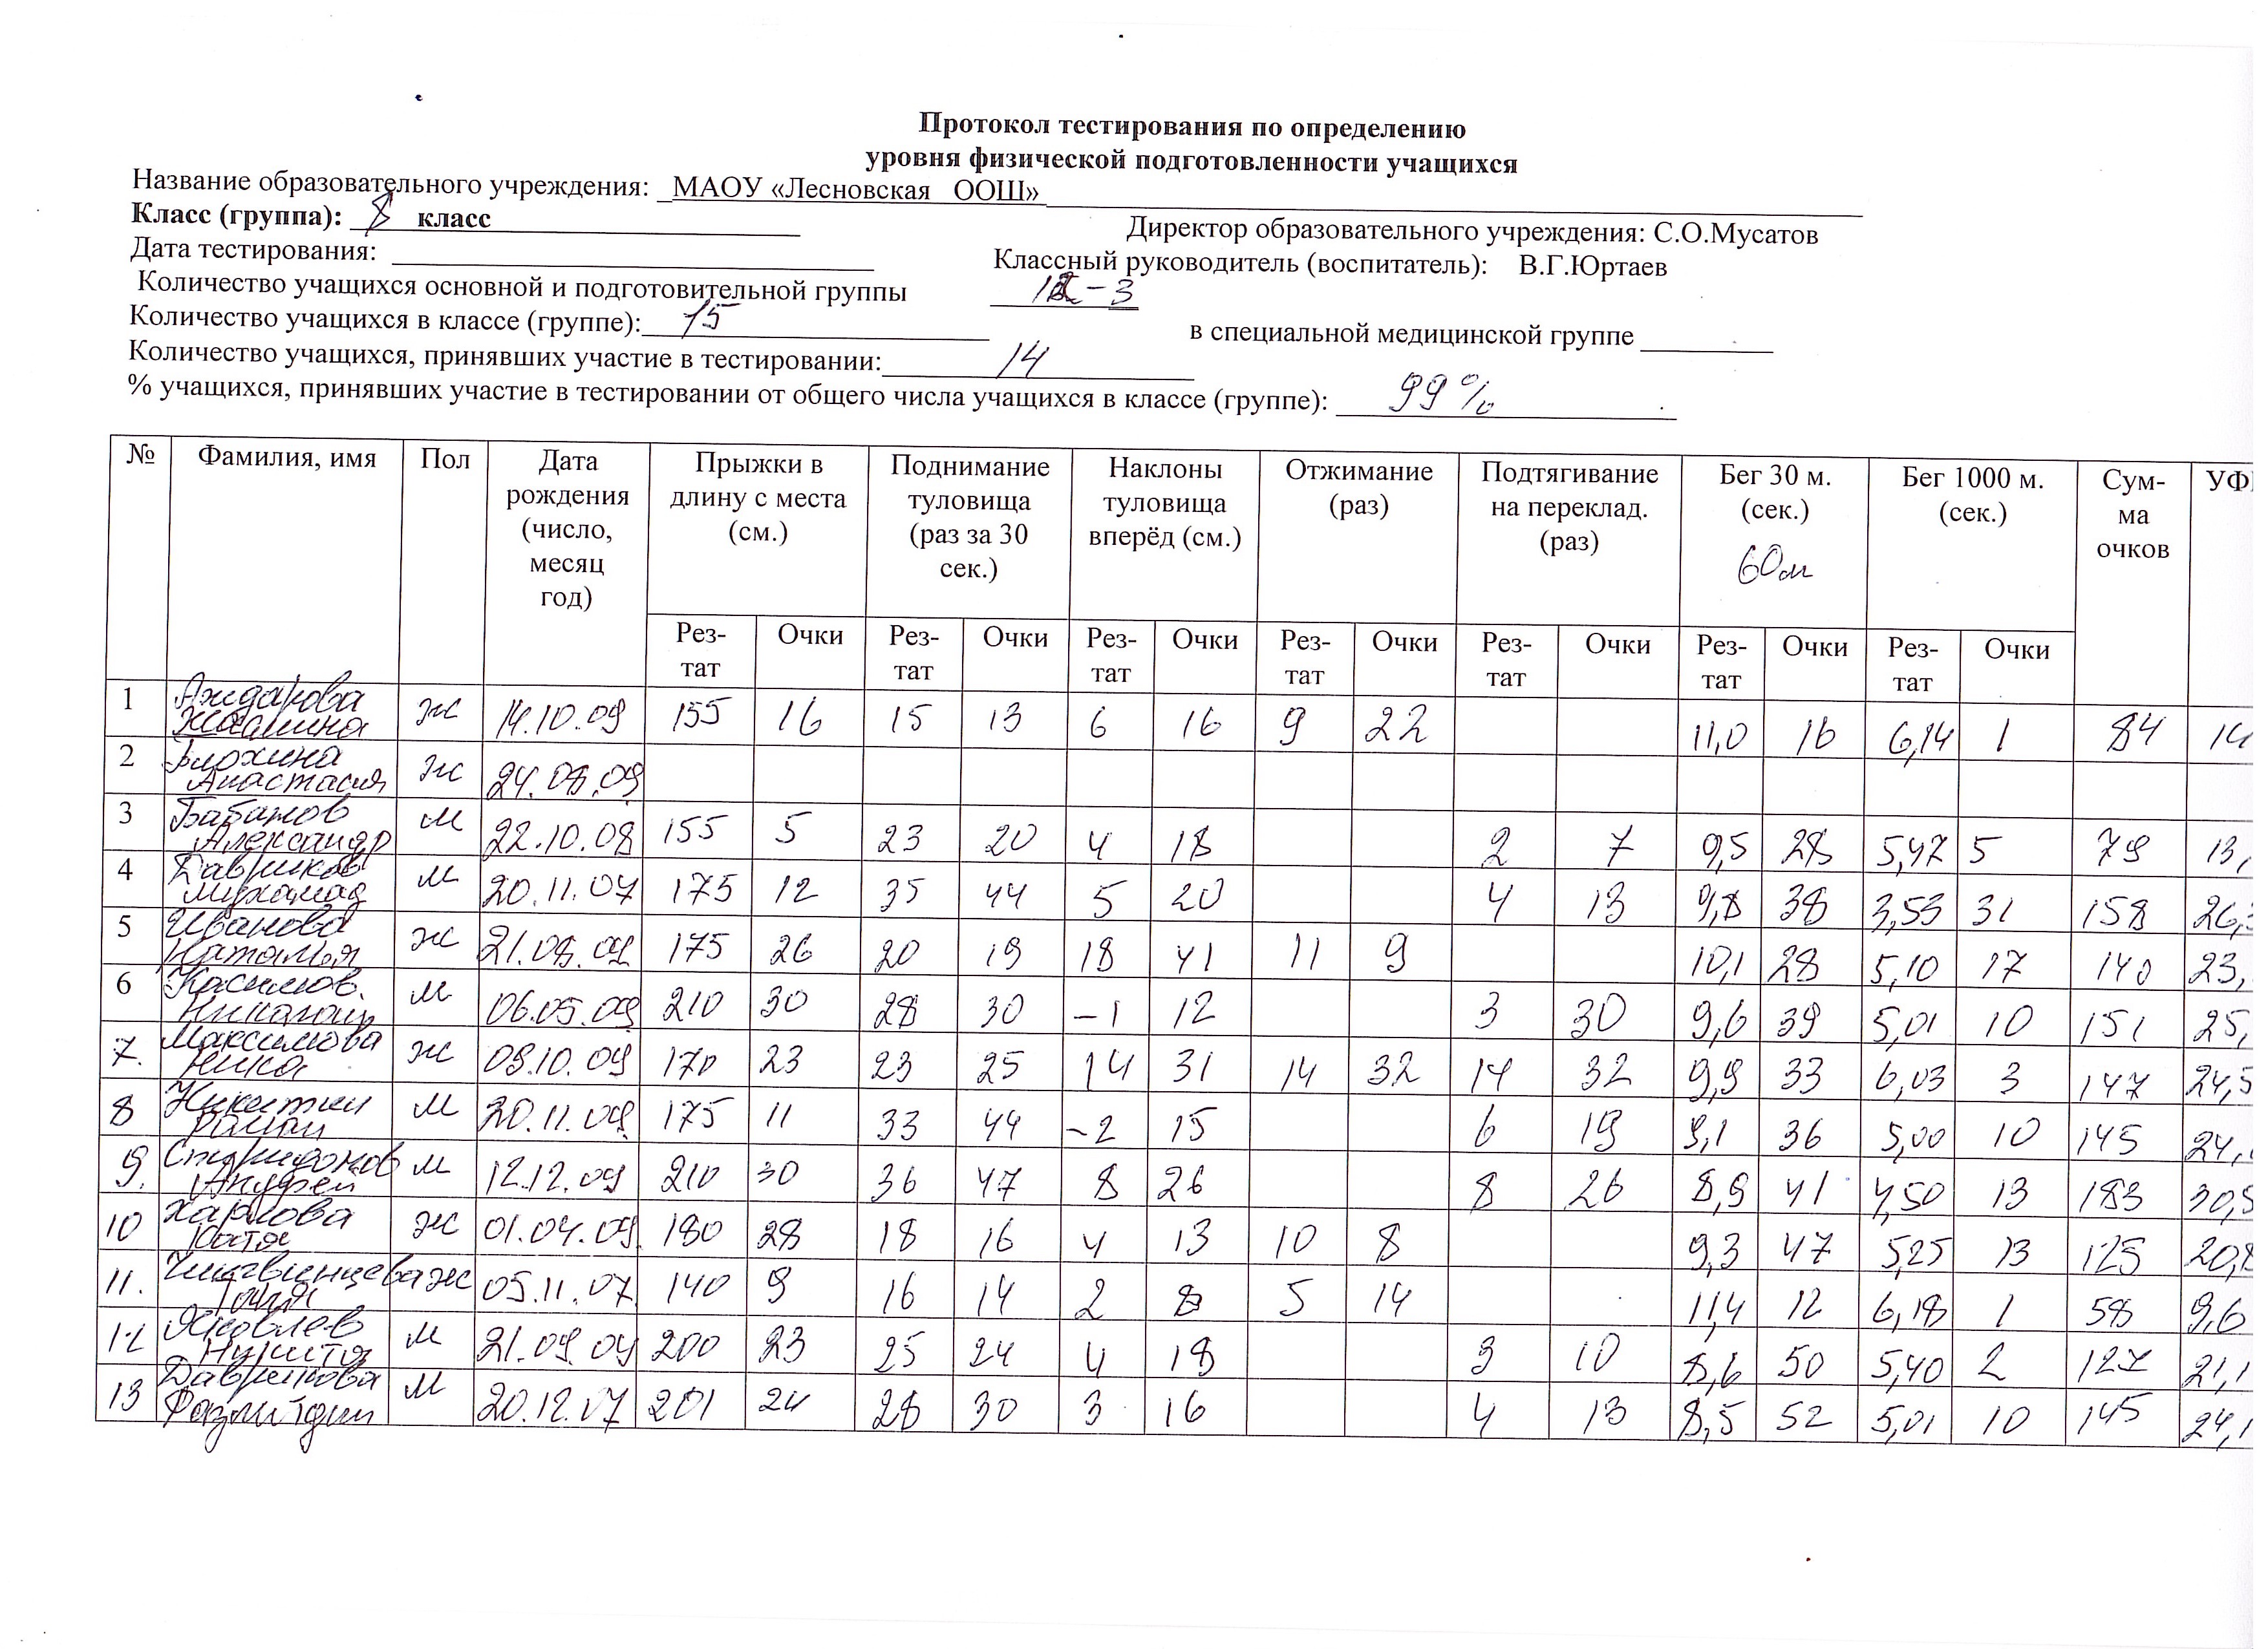 Протокол тестирования по определению
уровня физической подготовленности учащихся
Название образовательного учреждения: МАОУ «Лесновская ООШ»
Класс (группа): 8 класс
Директор образовательного учреждения: С.О.Мусатов
Дата тестирования:
Классный руководитель (воспитатель): В.Г.Юртаев
Количество учащихся основной и подготовительной группы 12-3
Количество учащихся в классе (группе): 15 в специальной медицинской группе
Количество учащихся, принявших участие в тестировании: 14
% учащихся, принявших участие в тестировании от общего числа учащихся в классе (группе): 99%
№ Фамилия, имя Пол Дата рождения (число, месяц год) Прыжки в длину с места (см.) Поднимание туловища (раз за 30 сек.) Наклоны туловища вперёд (см.) Отжимание (раз) Подтягивание на переклад. (раз) Бег 30 м. (сек.) 60м Бег 1000 м. (сек.) Сум-ма очков УФ
Рез-тат Очки Рез-тат Очки Рез-тат Очки Рез-тат Очки Рез-тат Очки Рез-тат Очки Рез-тат Очки
1 Аждарова ж 14.10.09 155 16 15 13 6 16 9 22 11,0 16 6,14 1 84 14
2 Блохина Анастасия ж 24.08.09
3 Бабанов Александр м 22.10.08 155 5 23 20 4 18 2 7 9,5 28 5,47 5 79 13,
4 Давриков Мухамад м 20.11.07 175 12 35 44 5 20 4 13 9,8 38 3,53 31 158 26,3
5 Иванова Наталья ж 21.08.09 175 26 20 19 18 41 11 9 10,1 28 5,10 17 140 23,
6 Касимов м 06.05.09 210 30 28 30 -1 12 3 30 9,6 39 5,01 10 151 25,
7. Максимова Ника ж 09.10.09 170 23 23 25 14 31 14 32 14 32 9,9 33 6,03 3 147 24,5
8 Никитин Роман м 20.11.09 175 11 33 44 -2 15 6 19 9,1 36 5,00 10 145 24,
9. Спиридонов Андрей м 12.12.09 210 30 36 47 8 26 8 26 8,9 41 4,50 13 183 30,5
10 Харлова Катя ж 01.04.09 180 28 18 16 4 13 10 8 9,3 47 5,25 13 125 20,8
11. ж 05.11.07 140 9 16 14 2 8 5 14 11,4 12 6,18 1 58 9,6
12 Яковлев Никита м 21.09.09 200 23 25 24 4 18 3 10 8,6 50 5,40 2 127 21,1
13 м 20.12.07 201 24 28 30 3 16 4 13 8,5 52 5,01 10 145 24,1